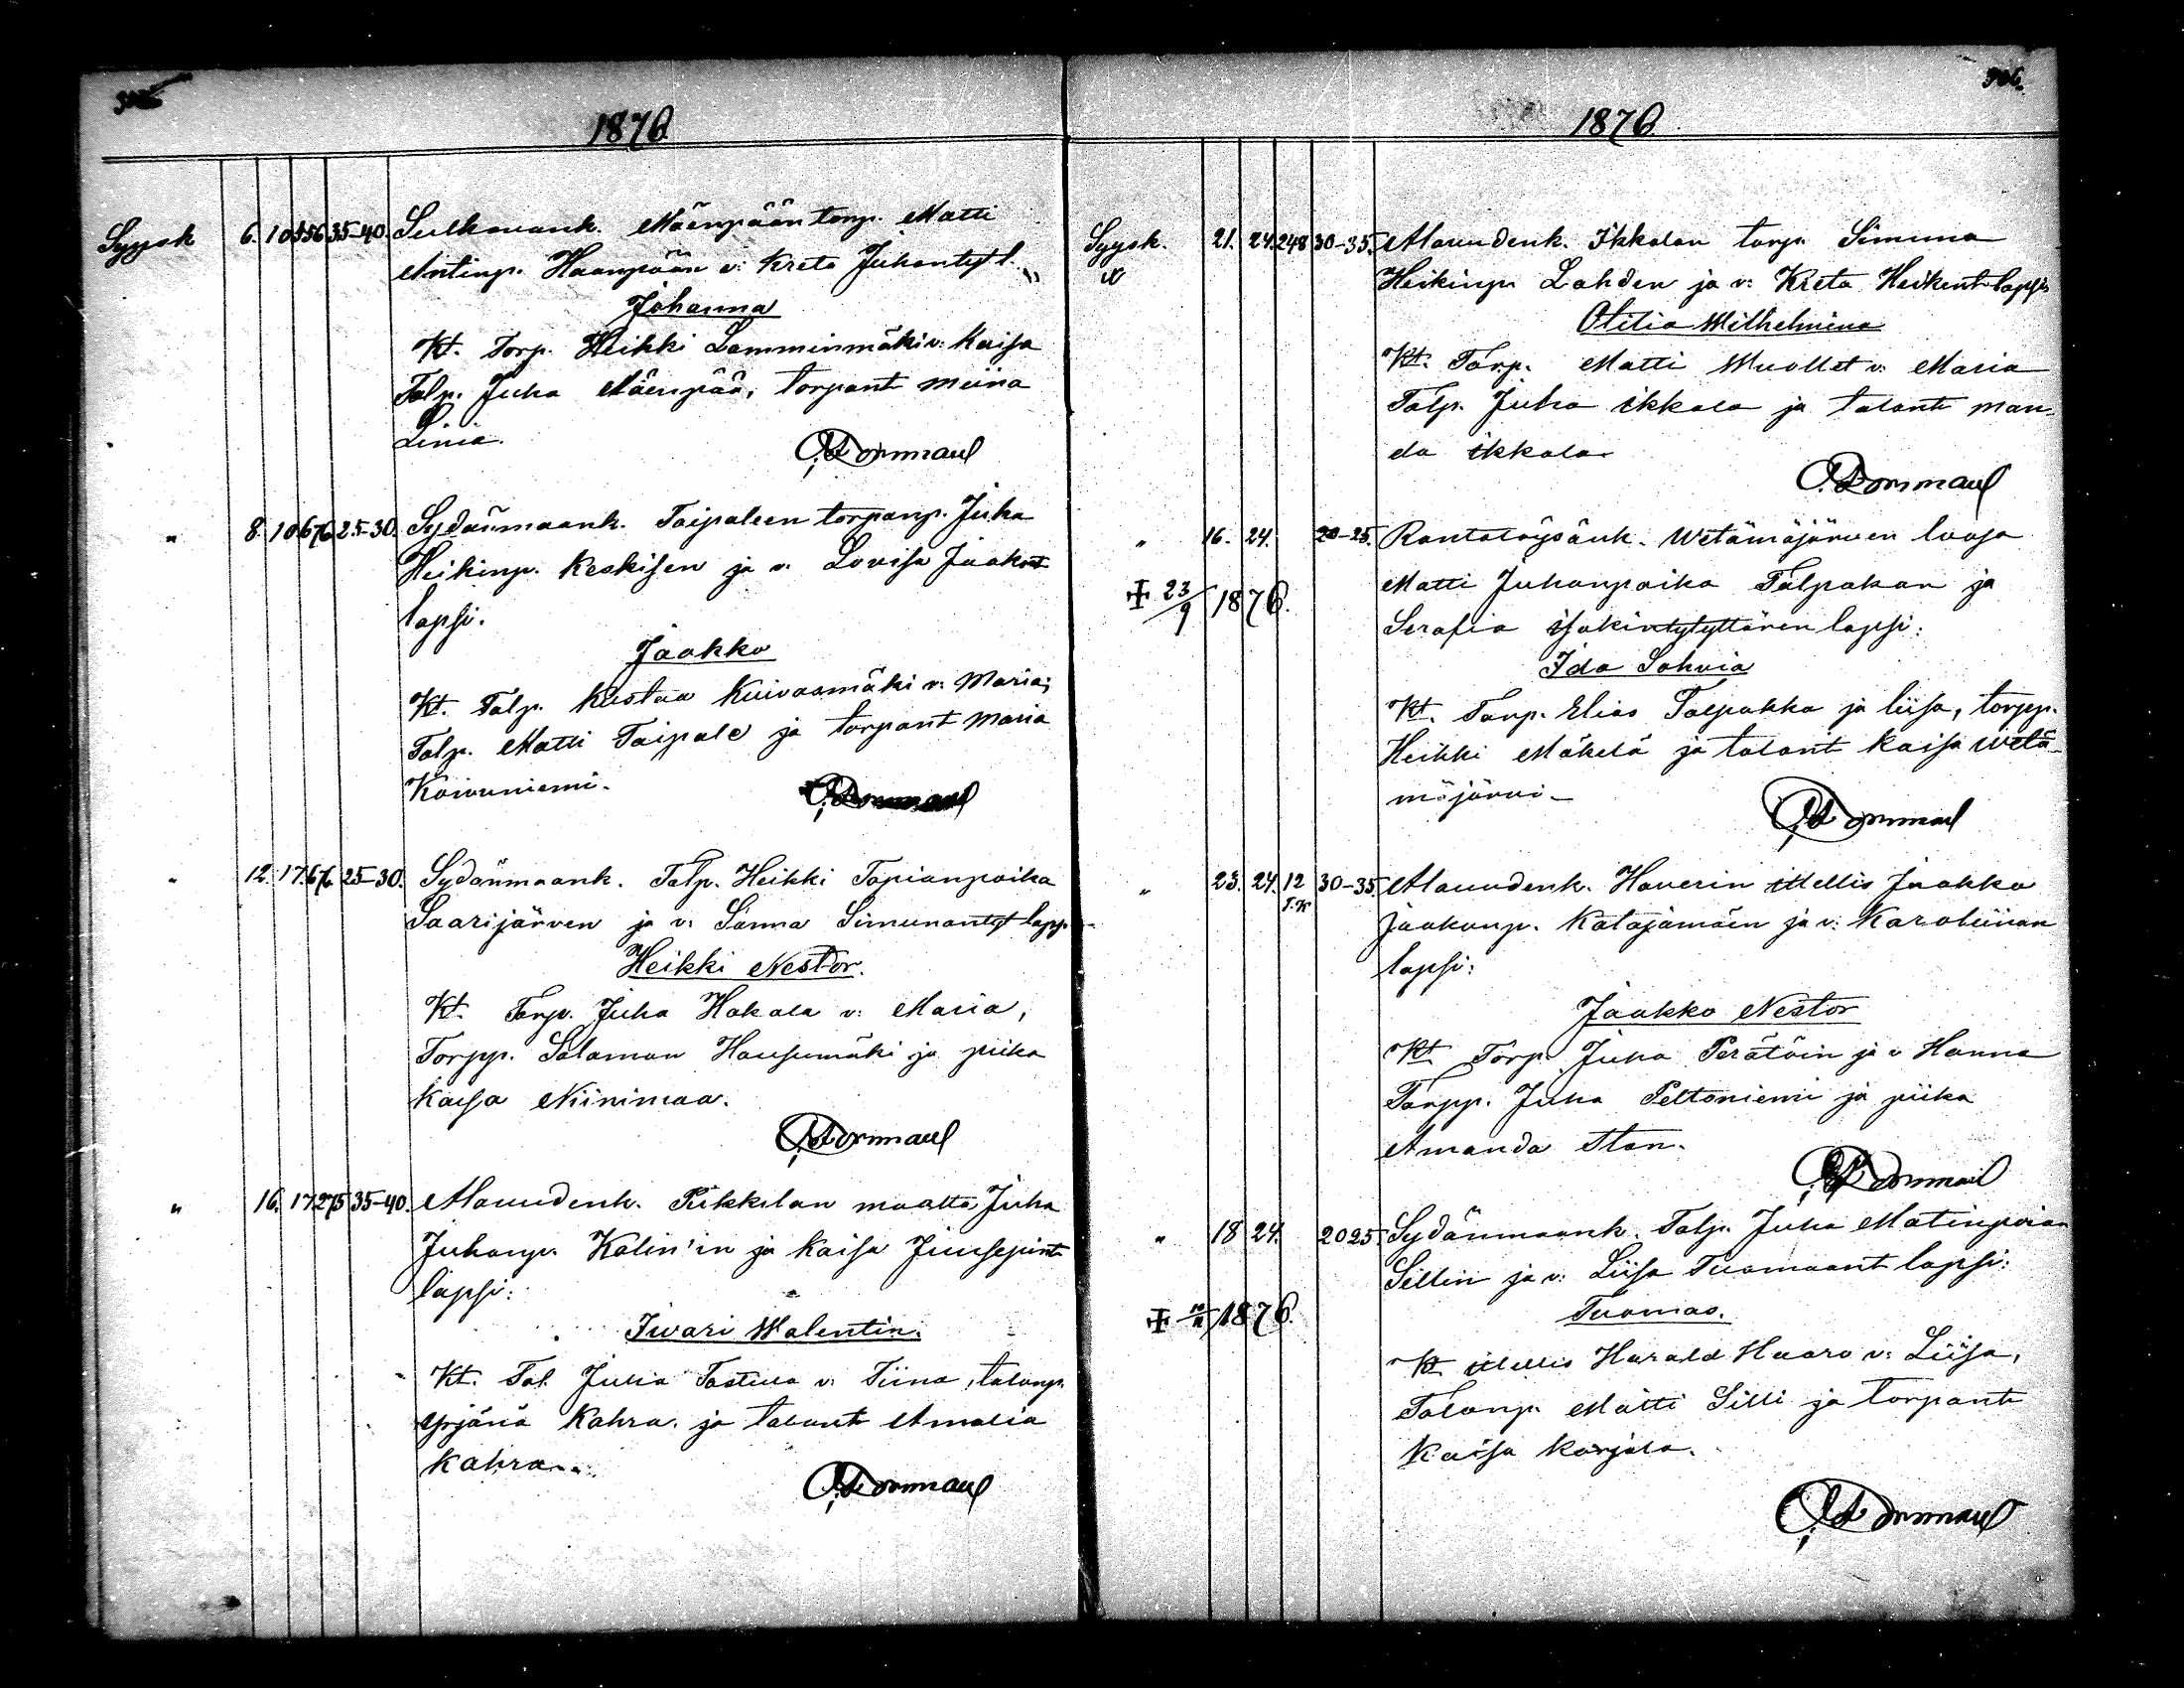 1876
Syysk 6. 10 556 35-40. Sulkavank. Mäenpään torp. Matti
Antinp. Haanpään v: Kreta Juhantyt l.
Johanna
Kt. Torp. Heikki Lamminmäki v: Kaisa
Talp. Juha Mäenpää, torpant miina
Linia.
" 8. 10. 676 25-30. Sydänmaank. Taipaleen torpanp. Juha
Heikinp. Keskisen ja v. Lovisa Jaakont
lapsi.
Jaakko
Kt. Talp. Kustaa Kuivasmäki v: Maria;
Talp. Matti Taipale ja torpant Maria
Koivuniemi.
" 12. 17. 676 25-30. Sydänmaank. Talp. Heikki Topianpoika
Saarijärven ja v: Sanna Simunantyt laps.
Heikki Nestor.
Kt. Torp. Juha Hakala v: Maria,
Torpp. Salomon Hausumäki ja piika
Kaisa Niinimaa.
" 16. 17. 275 35-40. Alavudenk. Pikkilan maalta Juha
Juhanp. Kalin'in ja Kaisa Juusepint
lapsi:
Iivari Walentin.
Kt. Tal. Juha Tastula v: Tiina, talonp.
Yrjänä Kahra. ja talont Amalia
Kahra.
306.
1876
Syysk. 21. 24. 248 30-35. Alavudenk. Ikkalan torp. Simuna
Heikinp. Lahden ja v: Kreta Heikent lapsi
Otilia Wilhelmina
Kt. Torp. Matti Muollet v: Maria
Talp. Juha Ikkala ja talont man-
da Ikkala
" 16. 24. 20-25. Rantatöysänk. Wetämäjärven luosa
Matti Juhanpoika Talpakan ja
Serafia Isakintytyttären lapsi:
✠ 23/9 1876.
Ida Sohvia
Kt. Torp. Elias Talpakka ja liisa, torpp.
Heikki Mäkelä ja talont Kaisa Wetä-
mäjärvi -
" 23. 24. 12 30-35. Alavudenk. Haverin Itellis Jaakko
T.K
Jaakonp. Katajamäen ja v: Karoliinan
lapsi:
Jaakko Nestor
Kt. Torp. Juha Perätöin ja v Hanna
Torpp. Juha Peltoniemi ja piika
Amanda Ston.
" 18 24. 20 25. Sydänmaank. Talp. Juha Matinpoian
Sillin ja v: Liisa Tuomaant lapsi:
1876.
Tuomas.
Kt Itellis Harald Haaro v: Liisa,
Talonp. Matti Silli ja torpant
Kaisa Karjala.